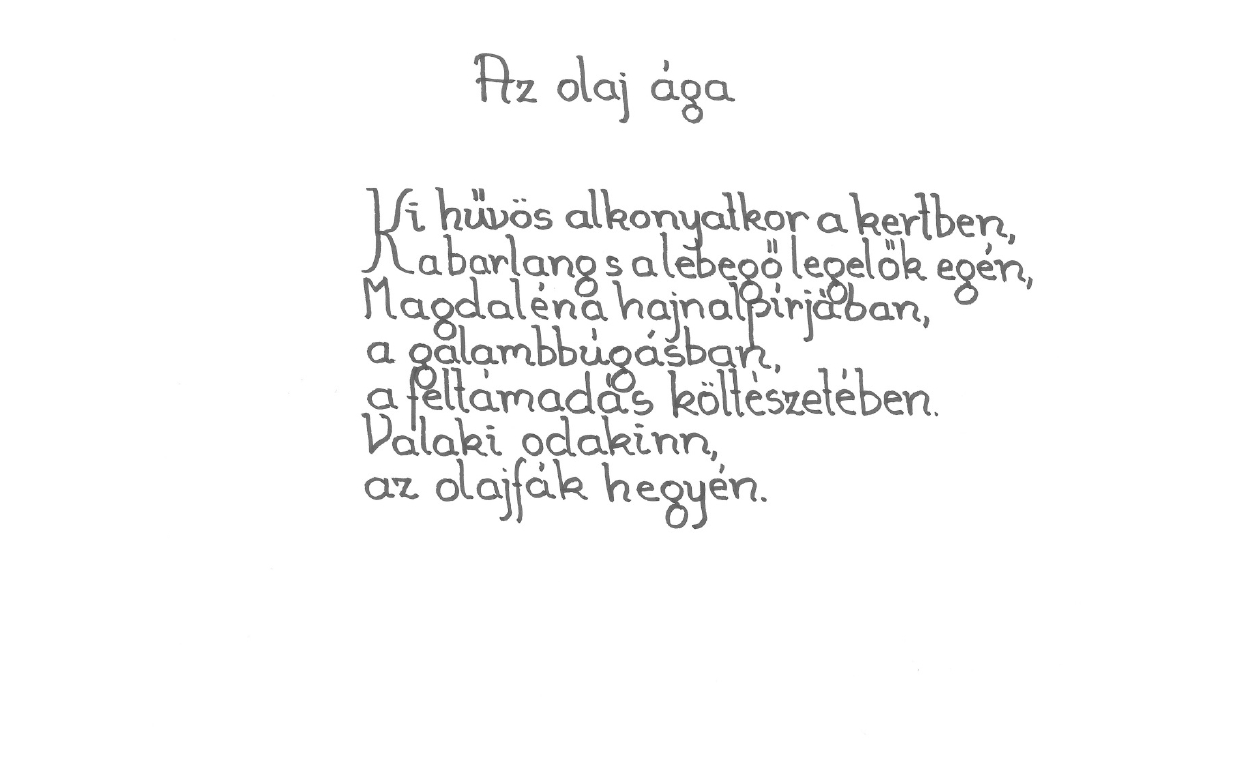 Az olaj ága
Ki hűvös alkonyatkor a kertben,
a barlang s a lebegő legelők egén,
Magdaléna hajnalpírjában,
a galambbúgásban,
a feltámadás költészetében.
Valaki odakinn,
az olajfák hegyén.